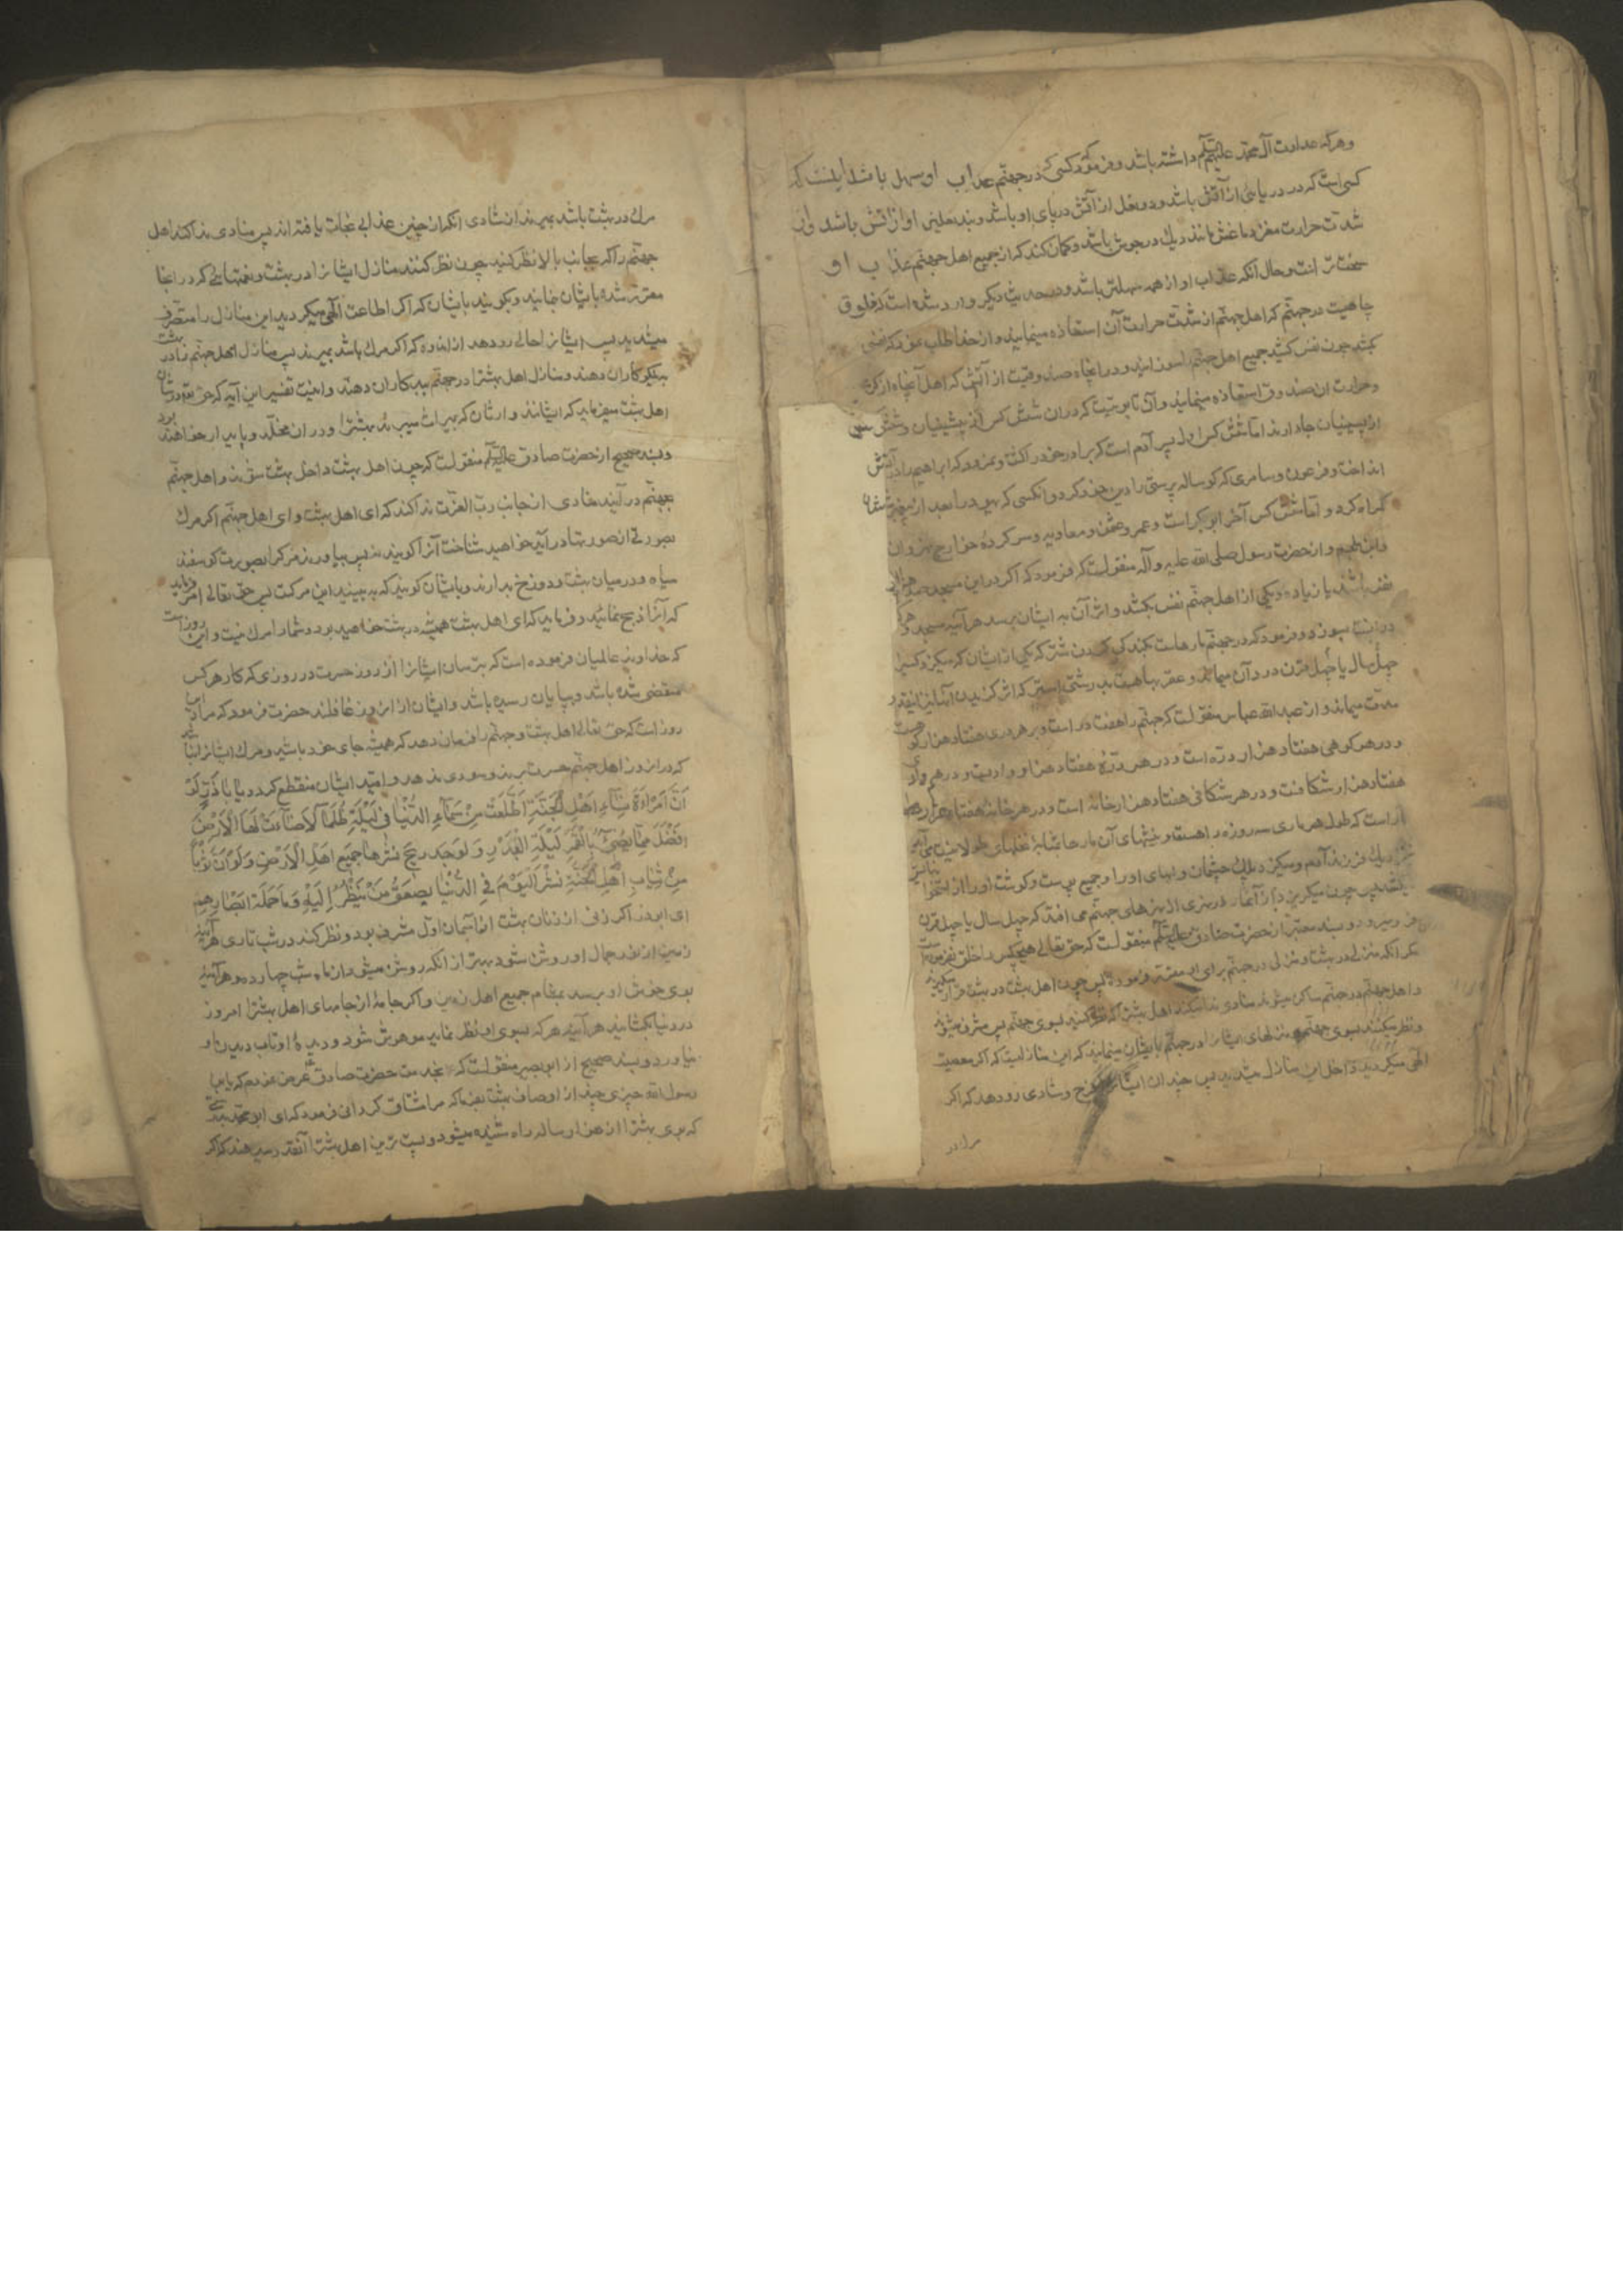 وهرکه عداوت آل محمد علیهم السلم داشته باشد و فرمود کسی که در جهنم عذاب او سهل باشد اینست که
کسی است که در دریائی از آتش باشد و دو نعل از آتش در پای او باشد و بند نعلینی او از آتش باشد و از
شدت حرارت مغز دماغش مانند دیک در جوش باشد و کمان کند که از جمیع اهل جهنم عذاب او
سخت تر است و حال انکه عذاب او از همه سهلتر باشد و در حدیث دیکر وارد شده است که فلق
چاهیست در جهنم که اهل جهنم از شدت حرارت آن استعاذه مینمایند و از خدا طلب نمود که نفسی
بکشد چون نفس کشید جمیع اهل جهنم را سوزانید و در انچاه صندوقیست از آتش که اهل آنچاه از کرمی
و حرارت ان صندوق استعاذه مینمایند و آن تابوتیست که در ان شش کس از پیشینیان و شش کس
از پسینیان جا دارند اما شش کس اول پسر آدم است که برادر خود را کشت و نمرود که ابراهیم را در آتش
انداخت و فرعون و سامری که کوساله پرستی را دین خود کرد و انکسی که یهود را بعد از پیغمبر ایشان
کمراه کرد و اما شش کس آخر ابوبکر است و عمر و عثمن و معاویه و سرکردهٔ خوارج نهروان
و ابن ملجم و از حضرت رسول صلی الله علیه و آله منقولست که فرمود که اکر در این مسجد صد هزار
نفر باشند یا زیاده و یکی از اهل جهنم نفس بکشد و اثر آن به ایشان برسد هر آینه مسجد و هرکه
در انست بسوزد و فرمود که در جهنم مارها هست بکندکی کردن شتر که یکی از ایشان که میکزد کسی را
چهل سال یا چهل قرن در درد آن میماند و عقربها هست بدرشتی استر که اثر کزیدن آنها نیز اینقدر
مدت میماند و از عبدالله عباس منقولست که جهنم را هفت در است و بر هر دری هفتاد هزار کوهست
و در هر کوهی هفتاد هزار دره است و در هر درهٔ هفتاد هزار وادیست و در هر وادی
هفتاد هزار شکافست و در هر شکافی هفتاد هزار خانه است و در هر خانه هفتاد هزار
مار است که طول هر ماری سه روزه راه است و نیشهای آن مارها بمثابهٔ نخلهای طولانیست می آید
نزدیک فرزند آدم و میکزد پلک چشمان و لبهای او را و جمیع پوست و کوشت او را از استخوان
میکشد پس چون میکریزد از آنمار در نهری از نهرهای جهنم می افتد که چهل سال یا چهل قرن
فرو میرود و بسند معتبر از حضرت صادق علیه السلم منقولست که حق تعالی هیچکس را خلق نفرموده است
مکر انکه منزلی در بهشت و منزلی در جهنم برای او مقرر فرموده پس چون اهل بهشت در بهشت قرار میکیرند
و اهل جهنم در جهنم ساکن میشوند منادی ندا میکند اهل بهشترا که نظر کنید بسوی جهنم پس مشرف میشوند
و نظر میکنند بسوی جهنم و منزلهای ایشانرا در جهنم بایشان مینمایند که این منازلیست که اکر معصیت
الهی میکردید داخل این منازل میشدید پس چندان ایشانرا فرح و شادی رو دهد که اکر
مرك در
مرك در بهشت باشد بمیرند از شادی انکه از چنین عذابی نجات یافته اند پس منادی ندا کند اهل
جهنم را که بجانب بالا نظر کنید چون نظر کنند منازل ایشانرا در بهشت و نعمتهائی که در انجا
مقرر شده بایشان نمایند و بکویند بایشان که اکر اطاعت الهی میکردید این منازل را متصرف
میشدید پس ایشانرا حالی رو دهد از اندوه که اکر مرك باشد بمیرند پس منازل اهل جهنم را در بهشت
به نیکوکاران دهند و منازل اهل بهشترا در جهنم ببدکاران دهند و اینست تفسیر این آیه که حق تعالی در شان
اهل بهشت میفرماید که ایشانند وارثان که بمیراث میبرند بهشترا و در ان مخلد و پایدار خواهند بود
و بسند صحیح از حضرت صادق علیه السلم منقولست که چون اهل بهشت داخل بهشت شوند و اهل جهنم
بجهنم در آیند منادی از جانب رب العزت ندا کند که ای اهل بهشت و ای اهل جهنم اکر مرك
بصورتی از صورتها در آید خواهید شناخت آنرا کویند نه پس بیاورند مرکرا بصورت کوسفند
سیاه و در میان بهشت و دوزخ بدارند و بایشان کویند که به بینید این مرکست پس حق تعالی امر فرماید
که آنرا ذبح نمایند و فرماید که ای اهل بهشت همیشه در بهشت خواهید بود و شما را مرك نیست و این روزیست
که خداوند عالمیان فرموده است که بترسان ایشانرا از روز حسرت در روزی که کار هر کس
منقضی شده باشد و بپایان رسیده باشد و ایشان از ان روز غافلند حضرت فرمود که مراد این
روز است که حق تعالی اهل بهشت و جهنم را فرمان دهد که همیشه در جای خود باشید و مرك ایشانرا نباشد
که در ان روز اهل جهنم حسرت برند و سودی ندهد و امید ایشان منقطع کردد یا ابا ذر لو
أن امرأة من نساء أهل الجنة اطلعت من سماء الدنیا فی لیلة ظلماء لأضاءت لها الأرض
افضل مما یضیء بالقمر لیلة البدر و لوجد ریح نشرها جمیع اهل الأرض و لو أن ثوبا
من ثیاب أهل الجنة نشر الیوم فی الدنیا لصعق من ینظر إلیه و ما حملته ابصارهم
ای ابوذر اکر زنی از زنان بهشت از آسمان اول مشرف بود و نظر کند در شب تاری هر آینه
زمین از نور جمال او روشن شود بهتر از انکه روشن میشود از ماه شب چهارده و هر آینه
بوی خوش او برسد بمشام جمیع اهل زمین و اکر جامهٔ از جامهای اهل بهشترا امروز
در دنیا بکشایند هر آینه هر که بسوی او نظر نماید مدهوش شود و دیدهٔ او تاب دیدن او
نیاورد و بسند صحیح از ابو بصیر منقولست که بخدمت حضرت صادق عرض نمودم که یا ابن
رسول الله چیزی چند از اوصاف بهشت بفرما که مرا مشتاق کردانی فرمود که ای ابو محمد بدرستی
که بوی بهشترا از هزار ساله راه شنیده میشود و پست ترین اهل بهشترا آنقدر میدهند که اکر